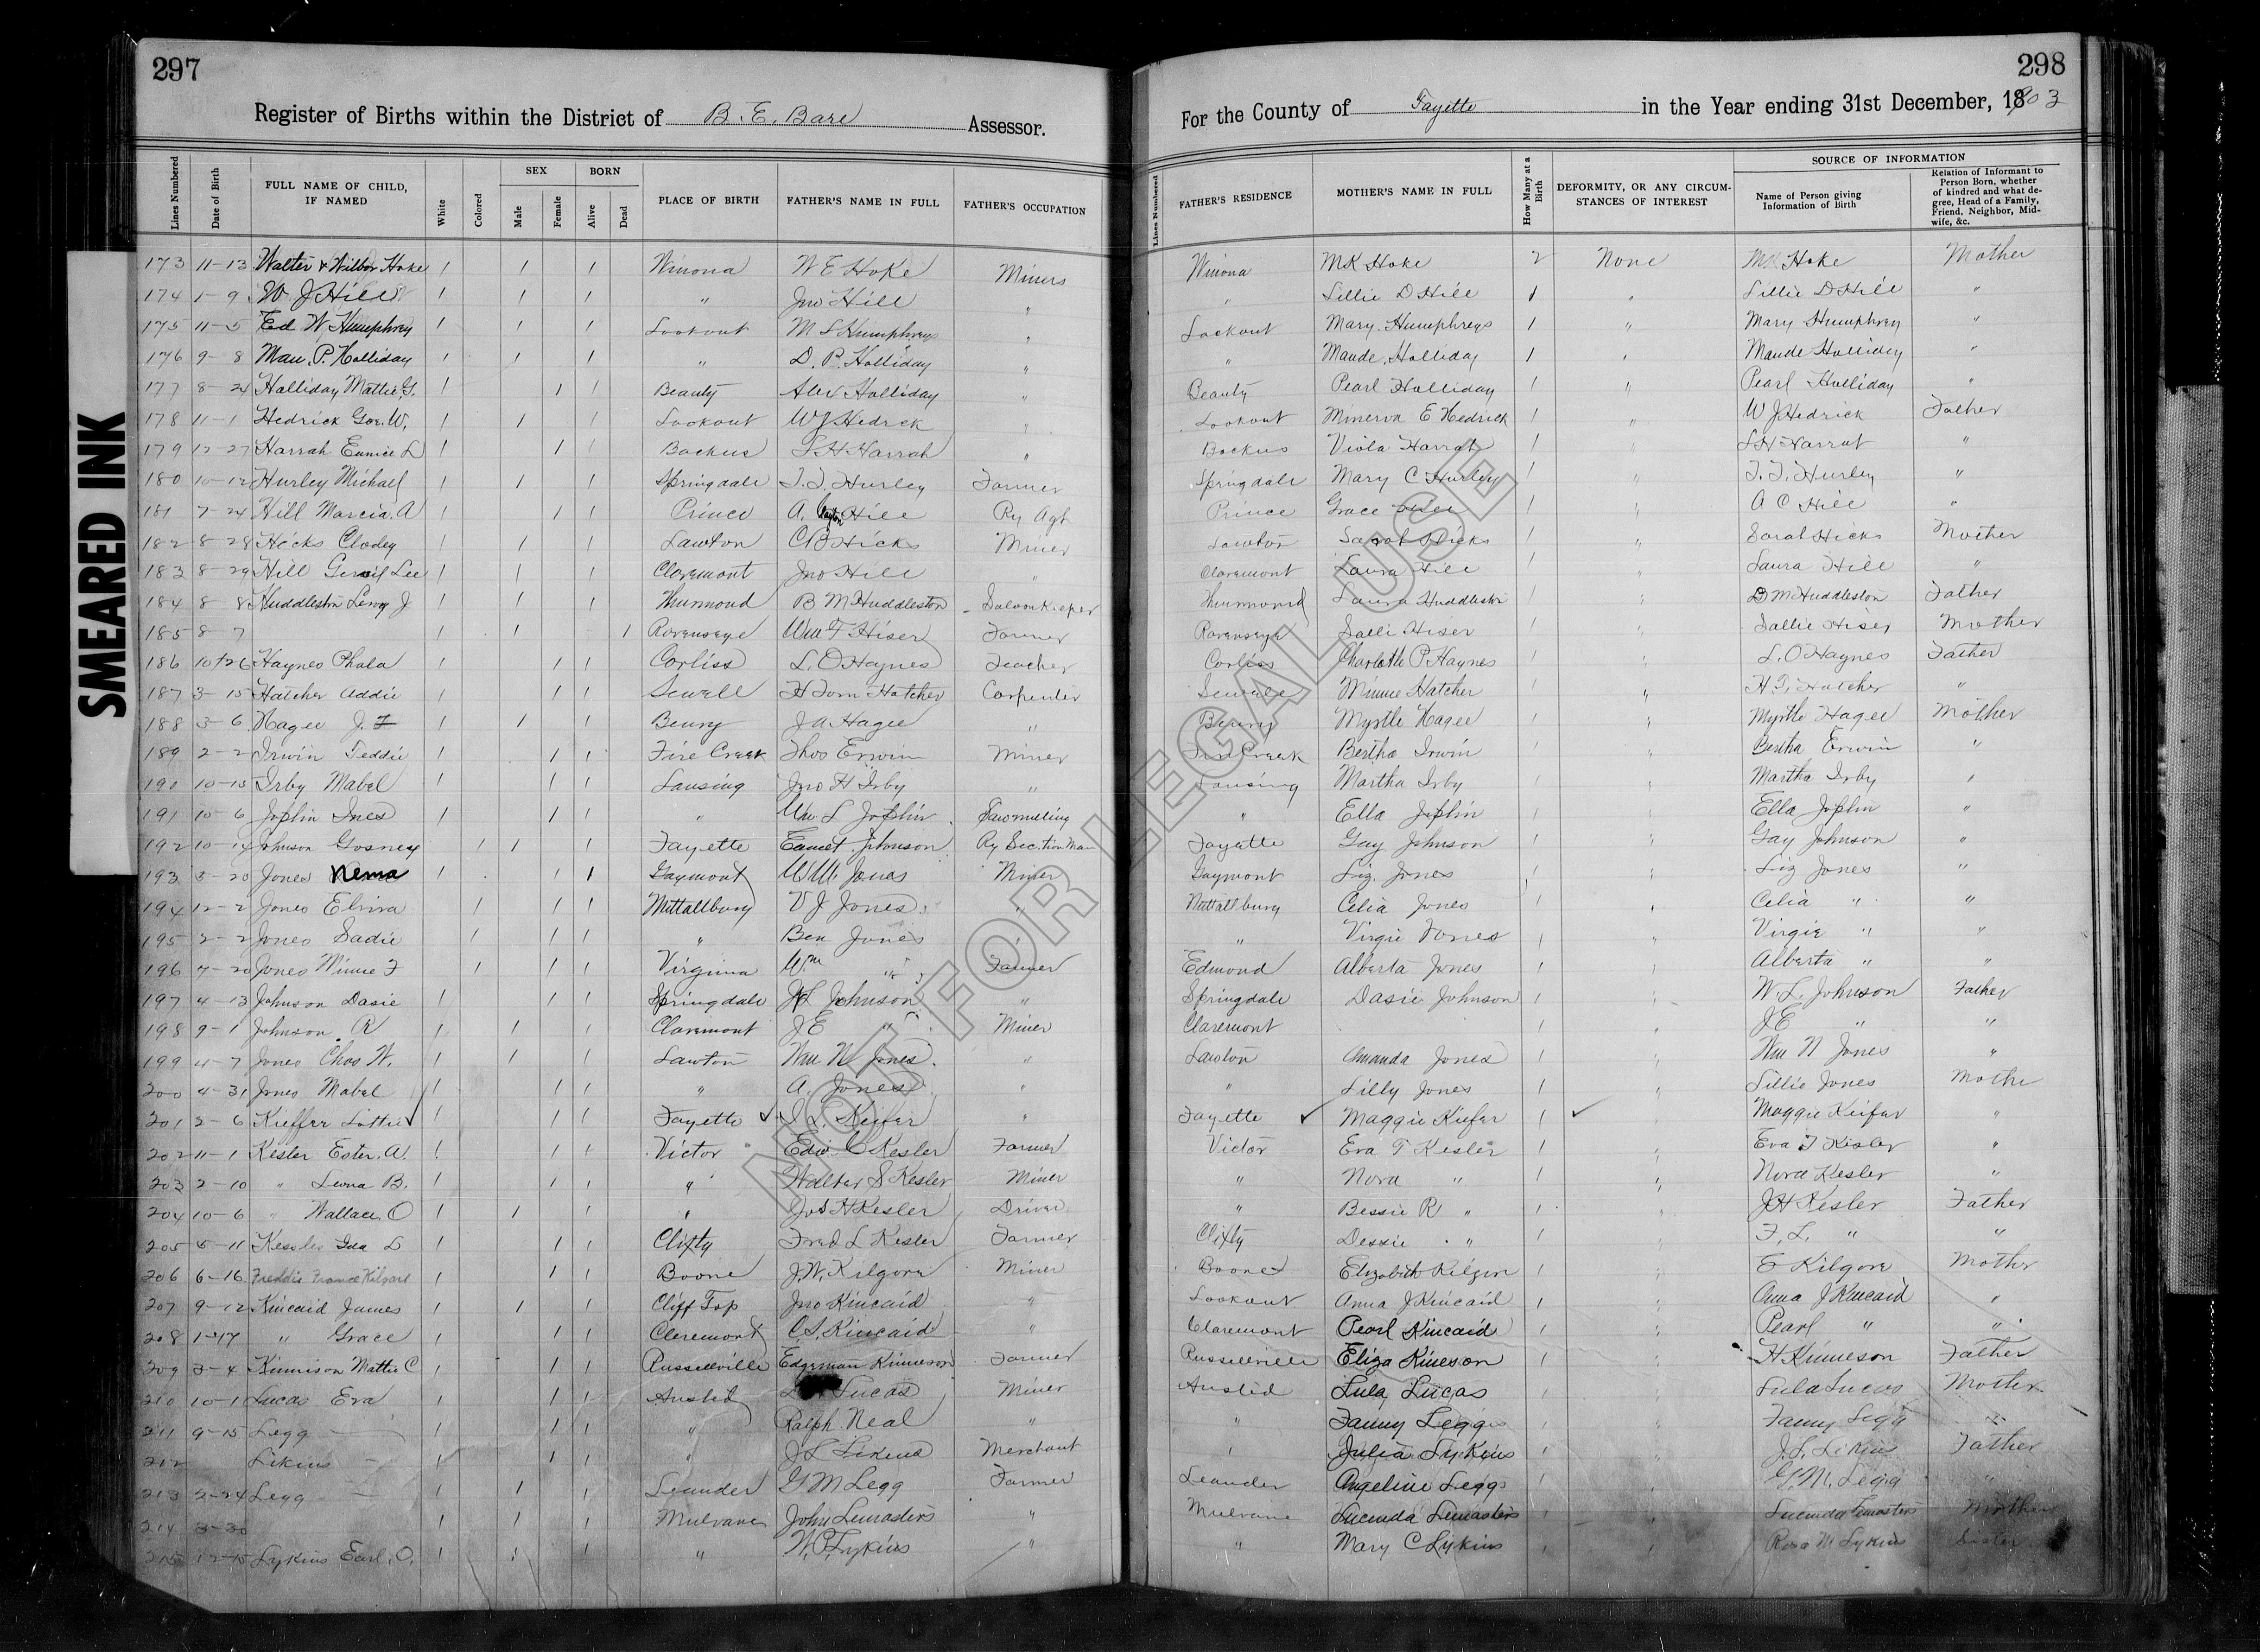 297
Register of Births within the District of B. E. Bare Assessor.
Lines Numbered | Date of Birth | FULL NAME OF CHILD, IF NAMED | White | Colored | SEX Male | Female | BORN Alive | Dead | PLACE OF BIRTH | FATHER'S NAME IN FULL | FATHER'S OCCUPATION
173 11-13 Walter & Wilbor Hoke 1 1 1 Winona W E Hoke Miners
174 1-9 W J Hill 1 1 1 " Jno Hill "
175 11-5 Ed W Humphrey 1 1 1 Lookout M S Humphreys "
176 9-8 Mau. P. Holliday 1 1 1 " D. P. Holliday "
177 8-24 Halliday Mattie G. 1 1 1 Beauty Alex Halliday "
178 11-1 Hedrick Geo. W. 1 1 1 Lookout W J Hedrck "
179 12-27 Harrah Eunice L 1 1 1 Backus S H Harrah "
180 10-12 Hurley Michael 1 1 1 Springdale T. T. Hurley Farmer
181 7-24 Hill Marcia. A 1 1 1 Prince A. Clayton Hill Ry Agt
182 8-28 Hicks Clodey 1 1 1 Lawton C B Hicks Miner
183 8-29 Hill Lee 1 1 1 Claremont Jno Hill "
184 8-8 Huddleston Leroy J 1 1 1 Thurmond B M Huddleston Saloon Keeper
185 8-7 1 1 1 Ravenseye Wm F Hiser Farmer
186 10/26 Haynes Phala 1 1 1 Corliss L. O Haynes Teacher
187 3-15 Hatcher Addie 1 1 1 Sewell H Tom Hatcher Carpenter
188 3-6 Hagee J. F 1 1 Beury J A Hagee "
189 2-2 Irwin Teddie 1 1 1 Fire Creek Thos Erwin Miner
190 10-15 Irby Mabel 1 1 1 Lansing Jno H Irby "
191 10-6 Joplin Ines 1 1 1 " Wm. L Joplin Sawmilling
192 10-14 Johnson Gosney 1 1 1 Fayette Emmet Johnson Ry Section Man
193 3-20 Jones Nema 1 1 1 Gaymont W. W. Jones Miner
194 12-2 Jones Elvira 1 1 1 Nuttallburg V J Jones "
195 2-2 Jones Sadie 1 1 1 " Ben Jones "
196 7-20 Jones Winnie F 1 1 1 Virginia Wm " Farmer
197 4-13 Johnson Dasie 1 1 1 Springdale W L Johnson "
198 9-1 Johnson. R 1 1 1 Claremont J E " Miner
199 4-7 Jones Chas W. 1 1 1 Lawton Wm N Jones "
200 4-31 Jones Mabel 1 1 1 " A. Jones "
201 2-6 Kieffer Lottie ✓ 1 1 1 Fayette ✓ L. Keifer "
202 11-1 Kesler Ester. A 1 1 1 Victor Edw. C Kesler Farmer
203 2-10 " Leona B. 1 1 1 " Walter S Kesler Miner
204 10-6 " Wallace O 1 1 1 " Jos H Kesler Driver
205 5-11 Kessler Ida L 1 1 1 Clifty Fred L Kesler Farmer
206 6-16 Freddie France Kilgore 1 1 1 Boone J. W. Kilgore Miner
207 9-12 Kincaid James 1 1 1 Cliff Top Jno Kincaid "
208 1-17 " Grace 1 1 1 Claremont C. S. Kincaid "
209 3-4 Kinnison Mattie C 1 1 1 Russellville Edgeman Kinneson Farmer
210 10-1 Lucas Eva 1 1 1 Ansted Lucas Miner
211 9-15 Legg 1 1 1 " Ralph Neal "
212 Likins 1 1 1 " J L Likens Merchant
213 2-24 Legg 1 1 1 Leander G M Legg Farmer
214 3-30 1 1 1 Mulvane John Lemasters "
215 12-15 Lykins Earl. O. 1 1 1 " W. P. Lykins "
298
For the County of Fayette in the Year ending 31st December, 1903
Lines Numbered | FATHER'S RESIDENCE | MOTHER'S NAME IN FULL | How Many at a Birth | DEFORMITY, OR ANY CIRCUMSTANCES OF INTEREST | SOURCE OF INFORMATION Name of Person giving Information of Birth | Relation of Informant to Person Born, whether of kindred and what degree, Head of a Family, Friend, Neighbor, Midwife, &c.
Winona M K Hoke 2 None M K Hoke Mother
" Lillie D Hill 1 " Lillie D Hill "
Lookout Mary Humphreys 1 " Mary Humphrey "
" Maude Holliday 1 " Maude Holliday "
Beauty Pearl Halliday 1 " Pearl Halliday "
Lookout Minerva E Hedrick 1 " W J Hedrick Father
Backus Viola Harrah 1 " S H Harrat "
Springdale Mary C Hurley 1 " T. T. Hurley "
Prince Grace Hill 1 " A C Hill "
Lawton Sarah Hicks 1 " Sarah Hicks Mother
Claremont Laura Hill 1 " Laura Hill "
Thurmond Laura Huddleston 1 " B M Huddleston Father
Ravenseye Salli Hiser 1 " Sallie Hiser Mother
Corliss Charlotte P Haynes 1 " L. O Haynes Father
Sewell Minnie Hatcher 1 " H. T. Hatcher "
Beury Myrtle Hagee 1 " Myrtle Hagee Mother
Fire Creek Bertha Irwin 1 " Bertha Erwin "
Lansing Martha Irby 1 " Martha Irby "
" Ella Joplin 1 " Ella Joplin "
Fayette Gay Johnson 1 " Gay Johnson "
Gaymont Liz. Jones 1 " Liz Jones "
Nuttallburg Celia Jones 1 " Celia " "
" Virgie Jones 1 " Virgie " "
Edmond Alberta Jones 1 " Alberta " "
Springdale Dasie Johnson 1 " W. L. Johnson Father
Claremont 1 " J E " "
Lawton Amanda Jones 1 " Wm N Jones "
" Lilly Jones 1 " Lillie Jones Mothe
Fayette ✓ Maggie Kiefer 1 ✓ " Maggie Keifer "
Victor Eva T Kesler 1 " Eva T Kesler "
" Nora " 1 " Nora Kesler "
" Bessie R " 1 " J H Kesler Father
Clifty Dessie " 1 " F. L. " "
Boone Elizabeth Kilgore 1 " E Kilgore Mother
Lookout Anna J Kincaid 1 " Anna J Kincaid "
Claremont Pearl Kincaid 1 " Pearl " "
Russellville Eliza Kineson 1 " H Kinneson Father
Ansted Lula Lucas 1 " Lula Lucas Mother
" Fanny Leggs 1 " Fanny Legg "
" Julia Lykins 1 " J. L. Likins Father
Leander Angeline Leggs 1 " G. M. Legg "
Mulvane Lucinda Lemasters 1 " Lucinda Lemasters Mother
" Mary C Lykins 1 " Rosa M Lykins Sister
SMEARED INK
NOT FOR LEGAL USE